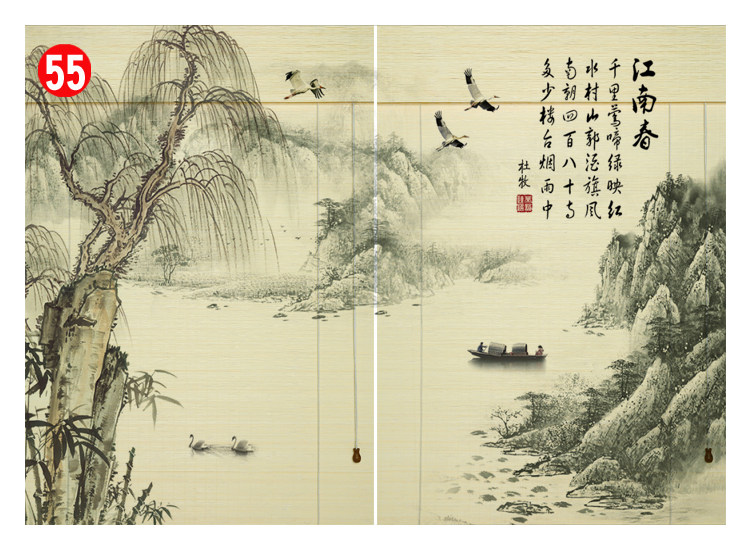 55
江南春
千里莺啼绿映红
水村山郭酒旗风
南朝四百八十寺
多少楼台烟雨中
杜牧